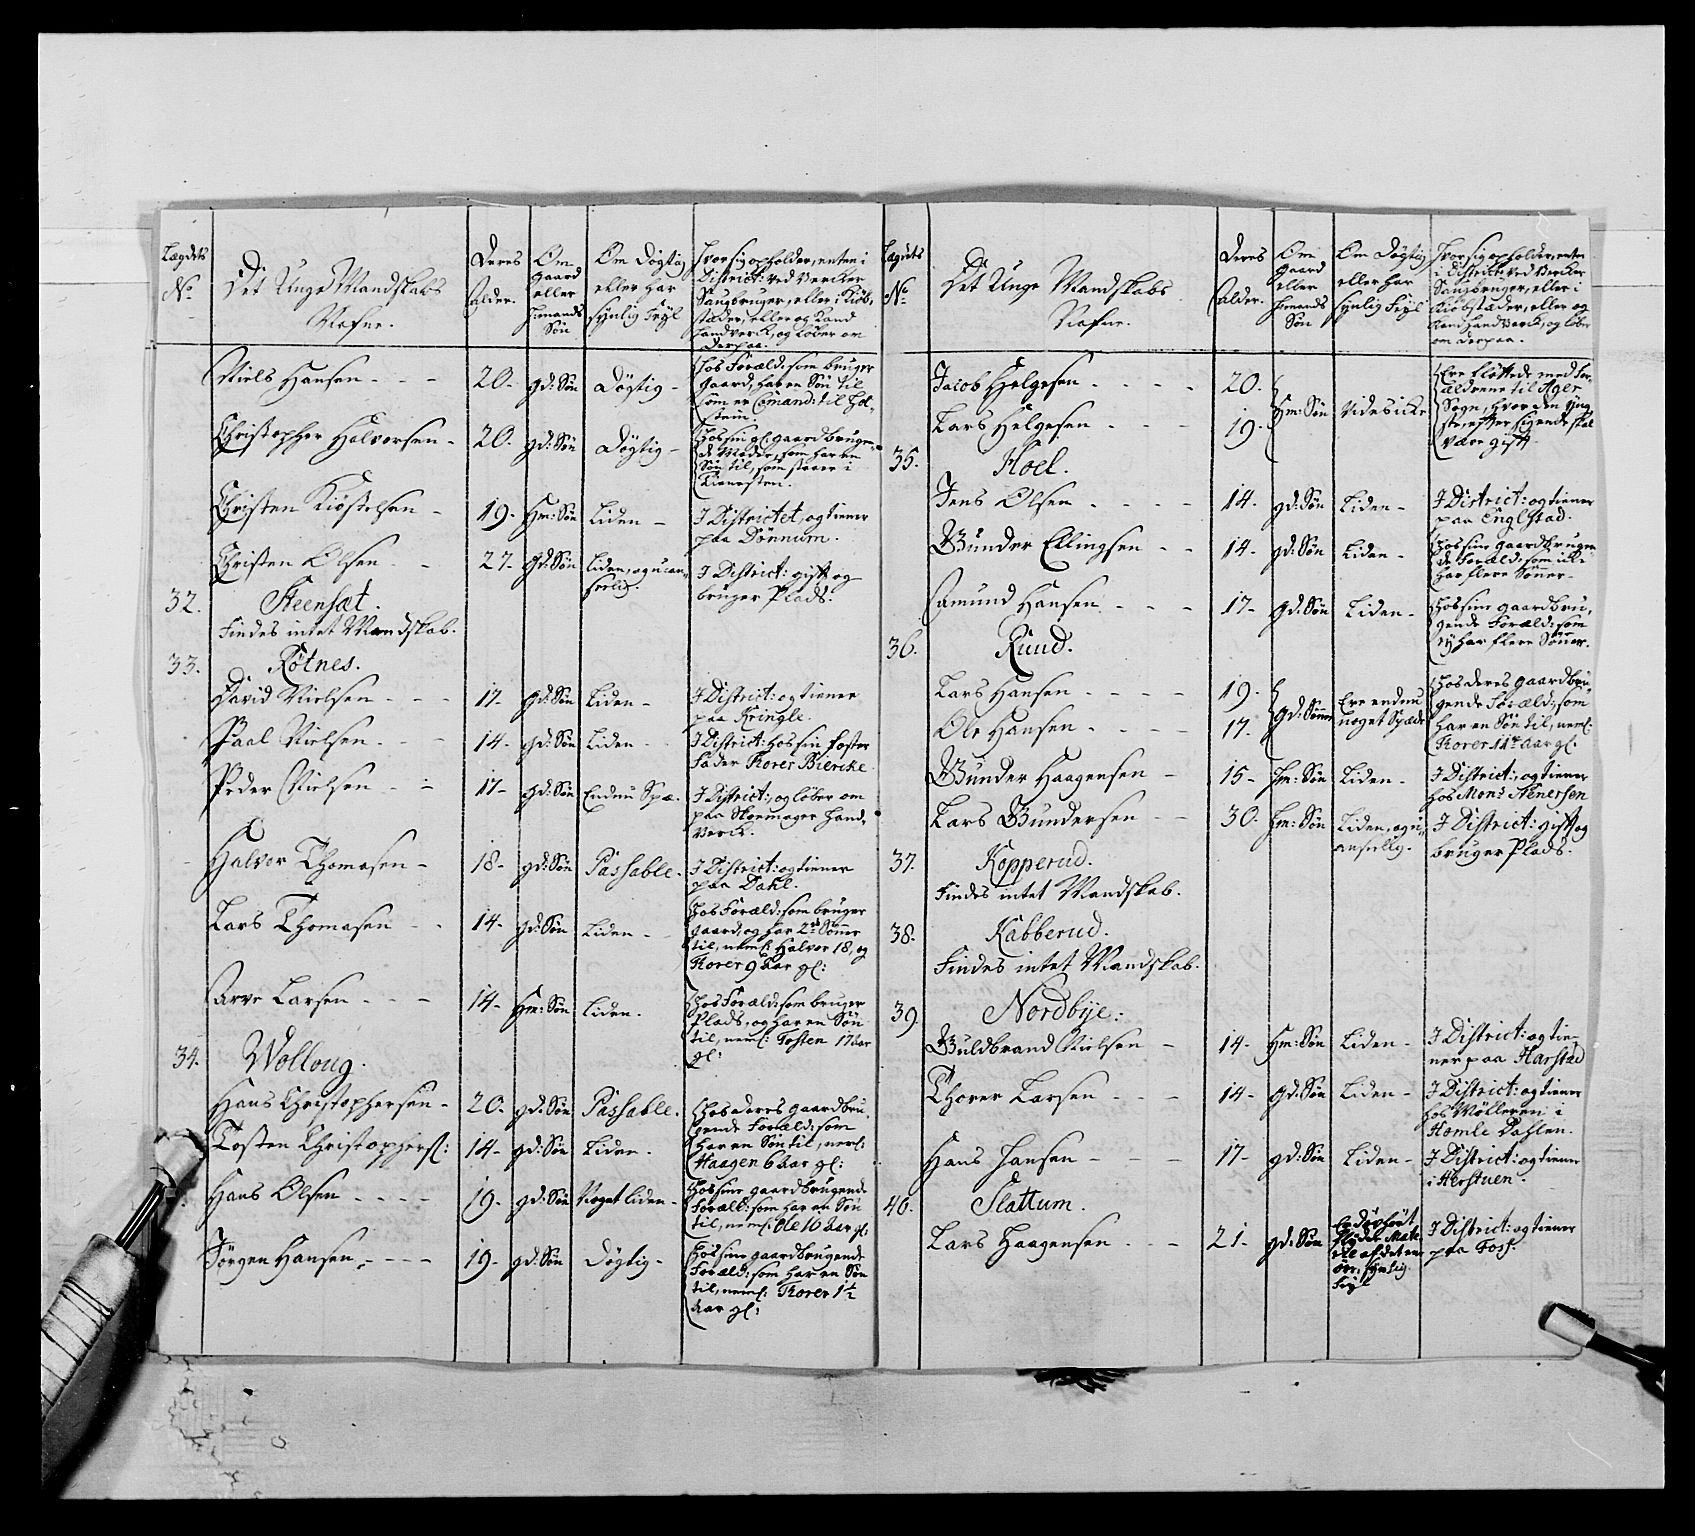 Lægdets No
Det Unge Mandskabs Nafne.
Deres alder.
Om Gaard eller Huusmands Søn
Om Døgtig eller har synlig Feyl
Hvor sig opholder, enten i District: ved Vercker, Saugbruger, eller i Kiøbstæder, eller og Land handverck, og løber om derpaa.
Niels Hansen - - - 20. gd: Søn Døgtig -
Hos Foræld: som bruger
Gaard, har en Søn til
som er Comand: til Hol-
stein.
Christopher Halvorsen - 20. gd: Søn Døgtig -
Hos sin gl: gaardbrugen-
de Moder, som har en
Søn til, som staaer i
Tienesten.
Christen Kiøstelsen - 19. Hm: Søn Liden -
I Districtet, og tiener
paa Dønnum.
Christen Olsen - - 27. gd: Søn Liden, og uan-
seelig.
I District: gift og
bruger Plads.
32. Steensæt.
Findes intet Mandskab.
33. Røtnes.
David Nielsen - - - 17. gd: Søn Liden -
I District: og tiener
paa Kringle.
Paal Nielsen - - - 14. gd: Søn Liden -
I District: hos sin Foster
Fader Thorer Biercke.
Peder Nielsen - - 17. gd: Søn Endnu Spæ.
I District:, og løber om
paa Skomager Hand-
verck.
Halvor Thomasen - 18. gd: Søn Passable.
I District: og tiener
paa Dahl.
Lars Thomasen - - 14. gd: Søn Liden -
Hos Foræld: som bruger
gaard, og har 2de Sønner
til, neml: Halvor 18, og
Thorer 9 Aar gl:
Arve Larsen - - - 14. Hm: Søn Liden.
Hos Foræld: som bruger
Plads, og har en Søn
til, neml: Tosten 17 Aar
gl:
34. Wolloug.
Hans Christophersen - 20. gd: Søn Passable.
Tosten Christophers: 14. gd: Søn Liden.
Hos deres gaardbru-
gende Foræld: som
har en Søn til, neml:
Haagen 6 Aar gl:
Hans Olsen - - - - 19. gd: Søn Noget liden -
Hos sine gaardbrugende
Foræld: som har en Søn
til, neml: Ole 10 Aar gl:
Jørgen Hansen - - - - 19. gd: Søn Døgtig -
Hos sine gaardbrugende
Foræld: som har en Søn
til, neml: Thorer 1½
Aar gl:
Lægdets No
Det Unge Mandskabs Nafne.
Deres alder.
Om Gaard eller Huusmands Søn
Om Døgtig eller har synlig Feyl
Hvor sig opholder, enten i District: ved Vercker Saugbruger, eller i Kiøbstæder, eller og Land Handverck, og løber om derpaa.
Jacob Helgesen - - - - 20.
Lars Helgesen - - - 19. Hm: Søn Vides icke
Ere fløttede med For-
ældrene til Ager
Sogn, hvor den Yng-
ste, efter sigende, skal
være gift
35. Hoel.
Jens Olsen - - - - 14. gd: Søn Liden -
I District: og tiener
paa Englstad.
Gunder Ellingsen - - 14. gd: Søn Liden -
Hos sine gaardbrugen-
de Foræld: som icke
har flere Sønner.
Amund Hansen - - - 17. gd: Søn Liden -
Hos sine gaardbru-
gende Foræld: som
ey har flere Sønner.
36. Ruud.
Lars Hansen - - - - 19.
Ole Hansen - - - - 17. gd: Sønner Ere endnu
noget Spæde
Hos deres gaardbru-
gende Foræld: som
har en Søn til, neml:
Thorer 11te Aar gl:
Gunder Haagensen - 15. Hm: Søn Liden -
I District:, og tiener
hos Monsr Nenersen
Lars Gundersen - - 30. Hm: Søn Liden, og u-
anseelig.
I District: gift og
bruger Plads.
37. Kopperud.
Findes intet Mandskab.
38. Kabberud.
Findes intet Mandskab.
39. Nordbye:
Guldbrand Nielsen - 14. Hm: Søn Liden -
I District: og tie-
ner paa Harstad
Thorer Larsen - - - 14. gd: Søn Liden -
I District: og tiener
hos Mølleren i
Homle Dahlen.
Hans Hansen - - - 17. gd: Søn Liden -
I District: og tiener
i Herstuen.
40. Slattum.
Lars Haagensen - - - 21. gd: Søn
synlig
Feyl
I District: og tiener
paa Foss.